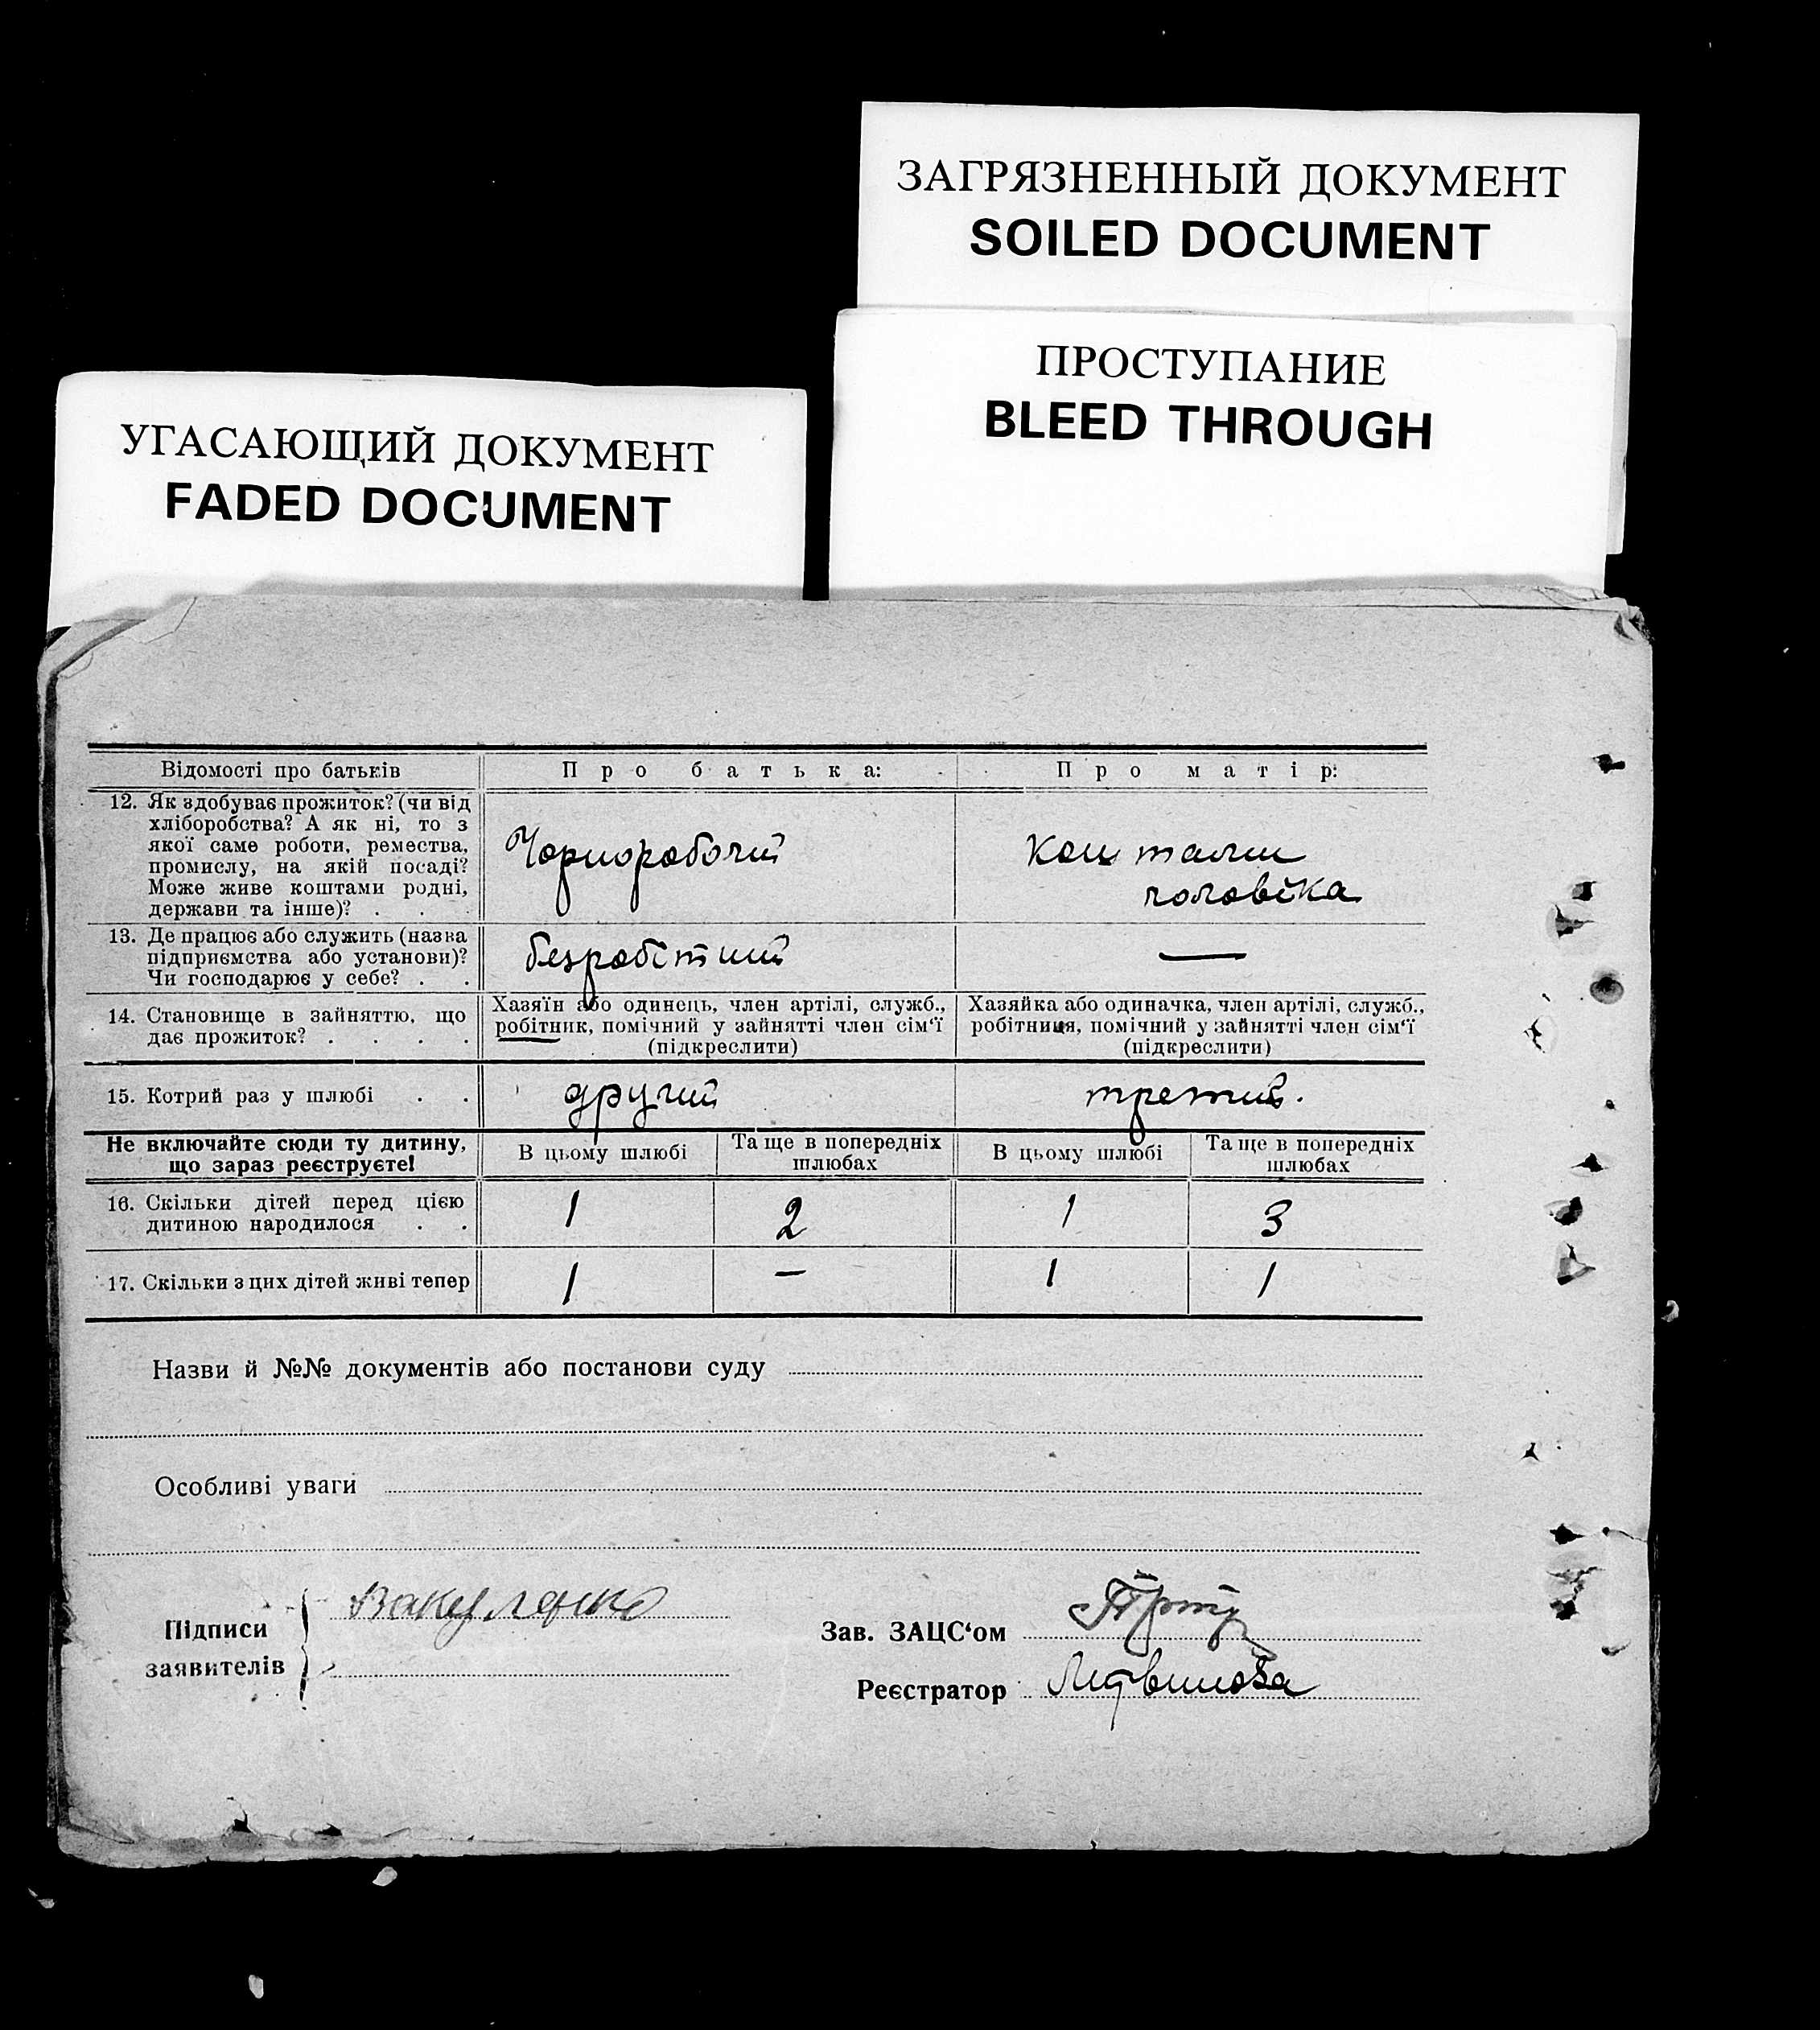 ЗАГРЯЗНЕННЫЙ ДОКУМЕНТ
SOILED DOCUMENT
ПРОСТУПАНИЕ
BLEED THROUGH
УГАСАЮЩИЙ ДОКУМЕНТ
FADED DOCUMENT
Відомості про батьків
Про батька:
Про матір:
12. Як здобуває прожиток? (чи від
хліборобства? А як ні, то з
якої саме роботи, ремества,
промислу, на якій посаді?
Може живе коштами родні,
держави та інше)? . . .
Чорноробочий
Коштами
чоловіка
13. Де працює або служить (назва
підприємства або установи)?
Чи господарює у себе? . .
безробітний
—
14. Становище в зайняттю, що
дає прожиток? . . . .
Хазяїн або одинець, член артілі, служб.,
робітник, помічний у зайнятті член сім'ї
(підкреслити)
Хазяйка або одиначка, член артілі, служб.,
робітниця, помічний у зайнятті член сім'ї
(підкреслити)
15. Котрий раз у шлюбі . .
другий
третий.
Не включайте сюди ту дитину,
що зараз реєструєте!
В цьому шлюбі
Та ще в попередніх
шлюбах
В цьому шлюбі
Та ще в попередніх
шлюбах
16. Скільки дітей перед цією
дитиною народилося . .
1
2
1
3
17. Скільки з цих дітей живі тепер
1
—
1
1
Назви й №№ документів або постанови суду
Особливі уваги
Підписи
заявителів
Вакуленко
Зав. ЗАЦС'ом
Реєстратор
Литвинова